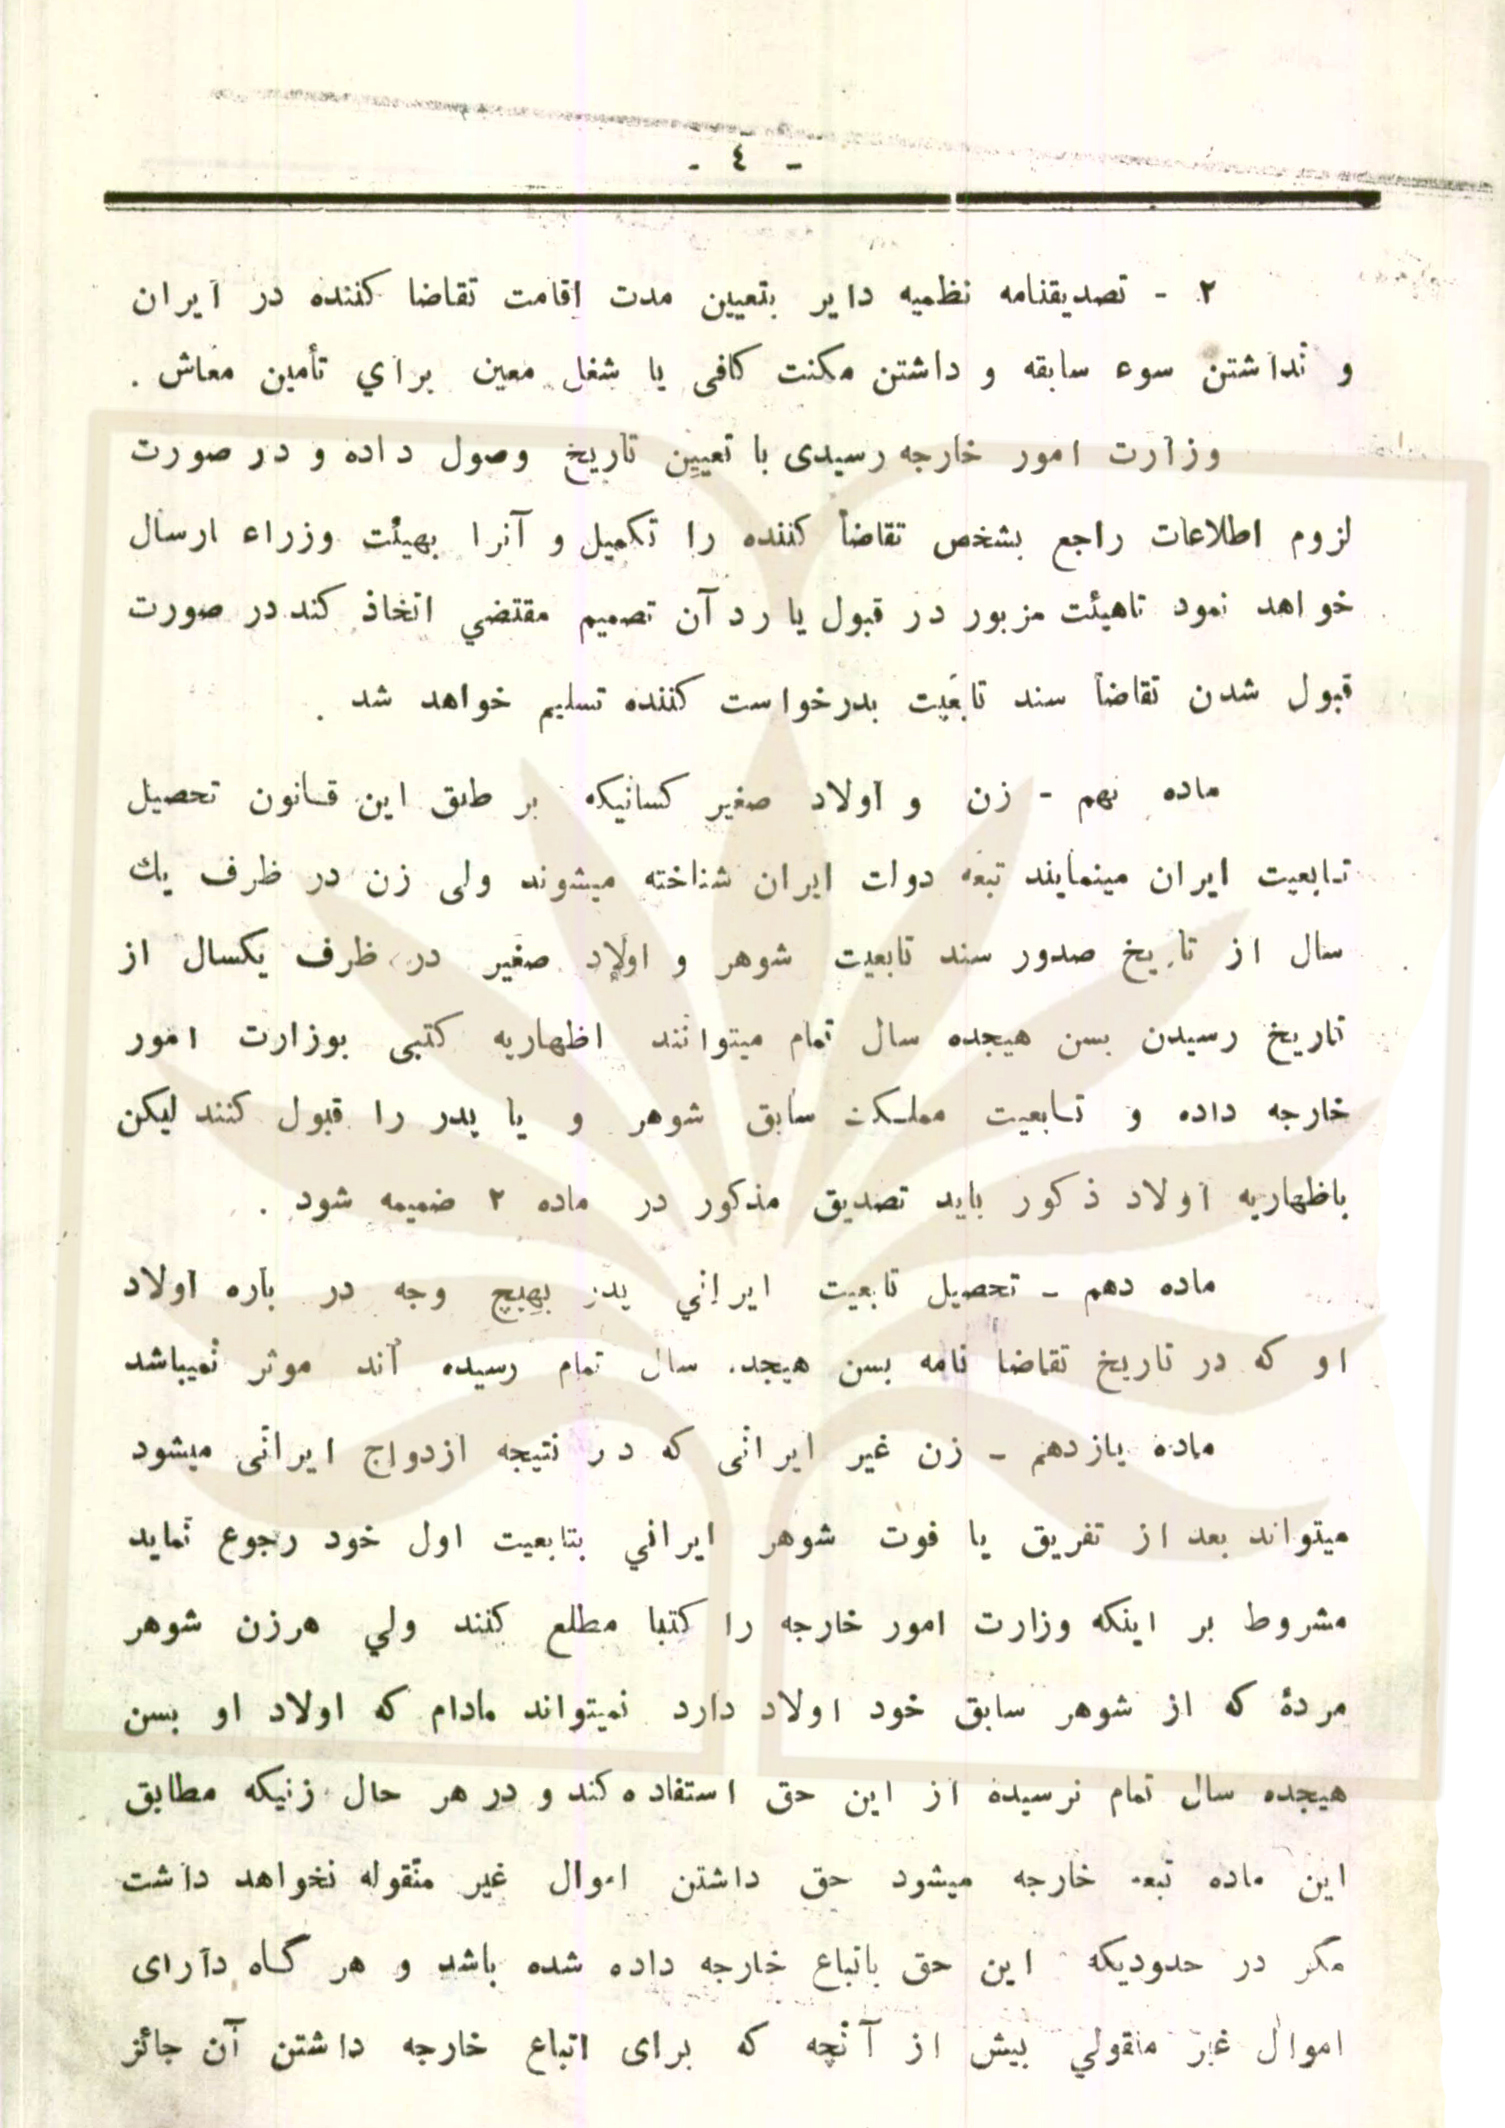 - ٤ -
٢ - تصدیقنامه نظمیه دایر بتعیین مدت اقامت تقاضا کننده در ایران
و نداشتن سوء سابقه و داشتن مکنت کافی یا شغل معین برای تأمین معاش .
وزارت امور خارجه رسیدی با تعیین تاریخ وصول داده و در صورت
لزوم اطلاعات راجع بشخص تقاضا کننده را تکمیل و آنرا بهیئت وزراء ارسال
خواهد نمود تاهیئت مزبور در قبول یا رد آن تصمیم مقتضي اتخاذ کند در صورت
قبول شدن تقاضا سند تابعیت بدرخواست کننده تسلیم خواهد شد .
ماده نهم - زن و اولاد صغیر کسانیکه بر طبق این قانون تحصیل
تابعیت ایران مینمایند تبعه دولت ایران شناخته میشوند ولی زن در ظرف یك
سال از تاریخ صدور سند تابعیت شوهر و اولاد صغیر در ظرف یکسال از
تاریخ رسیدن بسن هیجده سال تمام میتوانند اظهاریه کتبی بوزارت امور
خارجه داده و تابعیت مملکت سابق شوهر و یا پدر را قبول کنند لیکن
باظهاریه اولاد ذکور باید تصدیق مذکور در ماده ٢ ضمیمه شود .
ماده دهم - تحصیل تابعیت ایراني پدر بهیچ وجه در باره اولاد
او که در تاریخ تقاضا نامه بسن هیجده سال تمام رسیده اند موثر نمیباشد
ماده یازدهم - زن غیر ایرانی که در نتیجه ازدواج ایرانی میشود
میتواند بعد از تفریق یا فوت شوهر ایراني بتابعیت اول خود رجوع نماید
مشروط بر اینکه وزارت امور خارجه را کتبا مطلع کنند ولي هرزن شوهر
مردۀ که از شوهر سابق خود اولاد دارد نمیتواند مادام که اولاد او بسن
هیجده سال تمام نرسیده از این حق استفاده کند و در هر حال زنیکه مطابق
این ماده تبعه خارجه میشود حق داشتن اموال غیر منقوله نخواهد داشت
مگر در حدودیکه این حق باتباع خارجه داده شده باشد و هر گاه دارای
اموال غیر منقولي بیش از آنچه که برای اتباع خارجه داشتن آن جائز